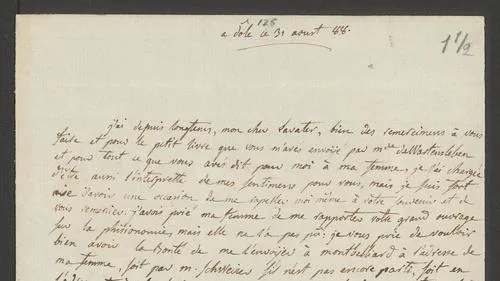 128
a dôle ce 31 aoust 88.
1 1/2
j'ai depuis longtems, mon cher Lavater, bien des remercimens à vous
faire et pour le petit livre que vous m'avés envoié par mde de Wartensleben
et pour tout ce que vous avés dit pour moi à ma femme, je l'ai chargée
d'être aussi l'interprette de mes sentimens pour vous, mais je suis fort
aise d'avoir une occasion de me rapeller moi même à votre souvenir et de
vous remercier. j'avois prié ma femme de me rapporter votre grand ouvrage
sur la phisionomie, mais elle ne l'a pas pû; je vous prie de vouloir
bien avoir la bonté de me l'envoier à montbelliard à l'adresse de
ma femme, soit par m. Schweizer s'il n'est pas encore parti, soit en